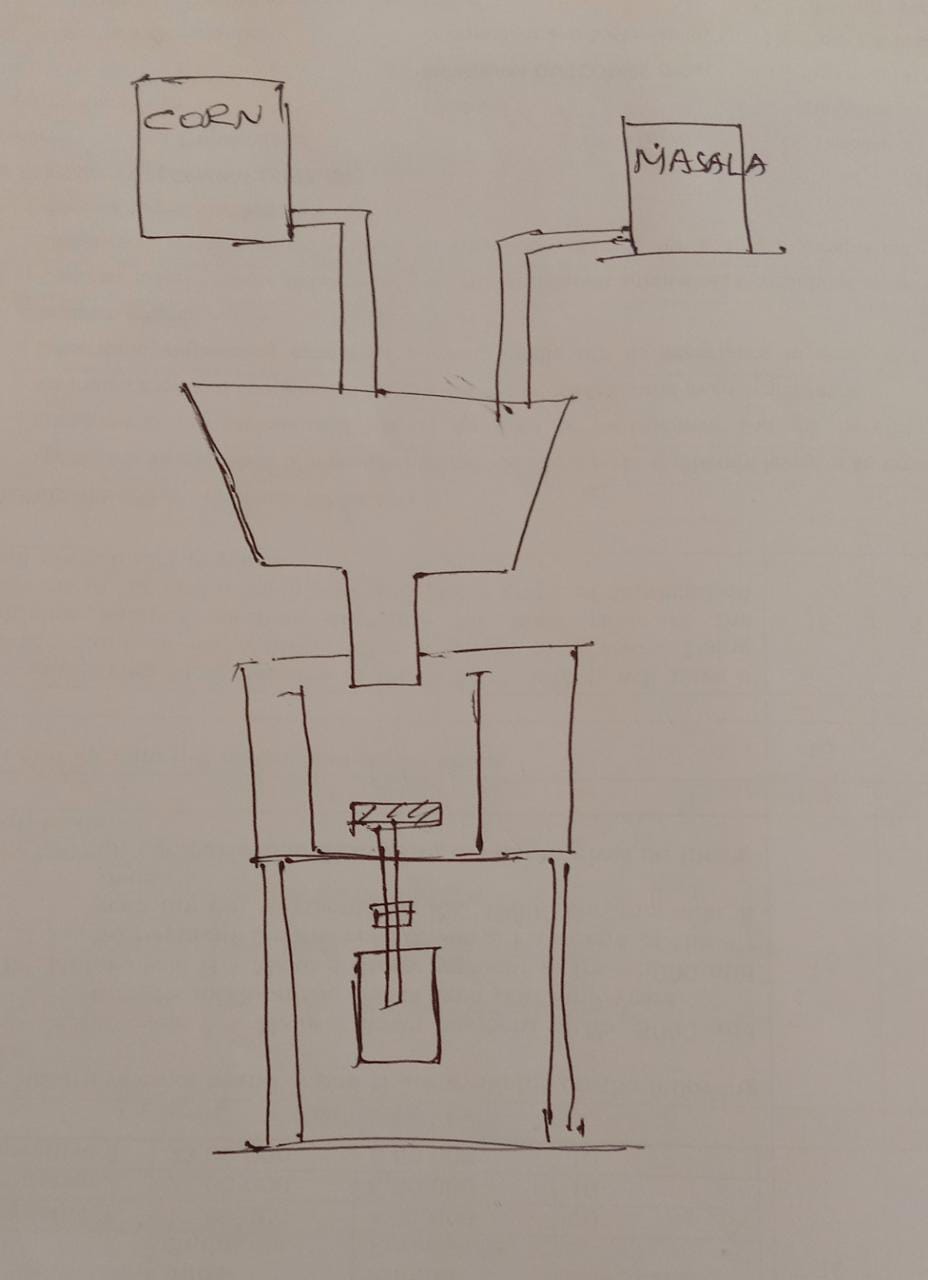 CORN
MASALA